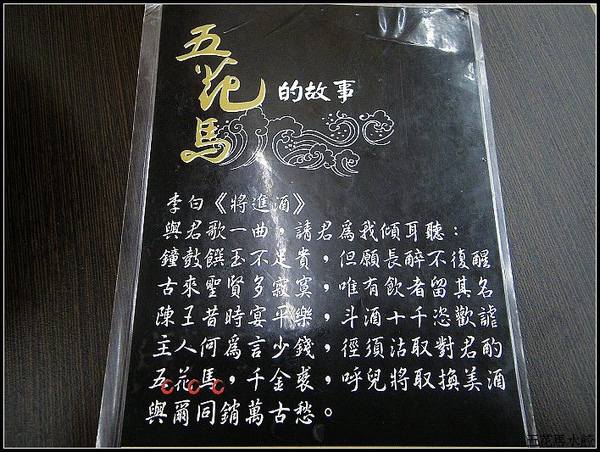 五花馬
的故事
李白《將進酒》
與君歌一曲，請君為我傾耳聽：
鐘鼓饌玉不足貴，但願長醉不復醒
古來聖賢多寂寞，唯有飲者留其名
陳王昔時宴平樂，斗酒十千恣歡謔
主人何為言少錢，徑須沽取對君酌
五花馬，千金裘，呼兒將取換美酒
與爾同銷萬古愁。
五花馬水餃